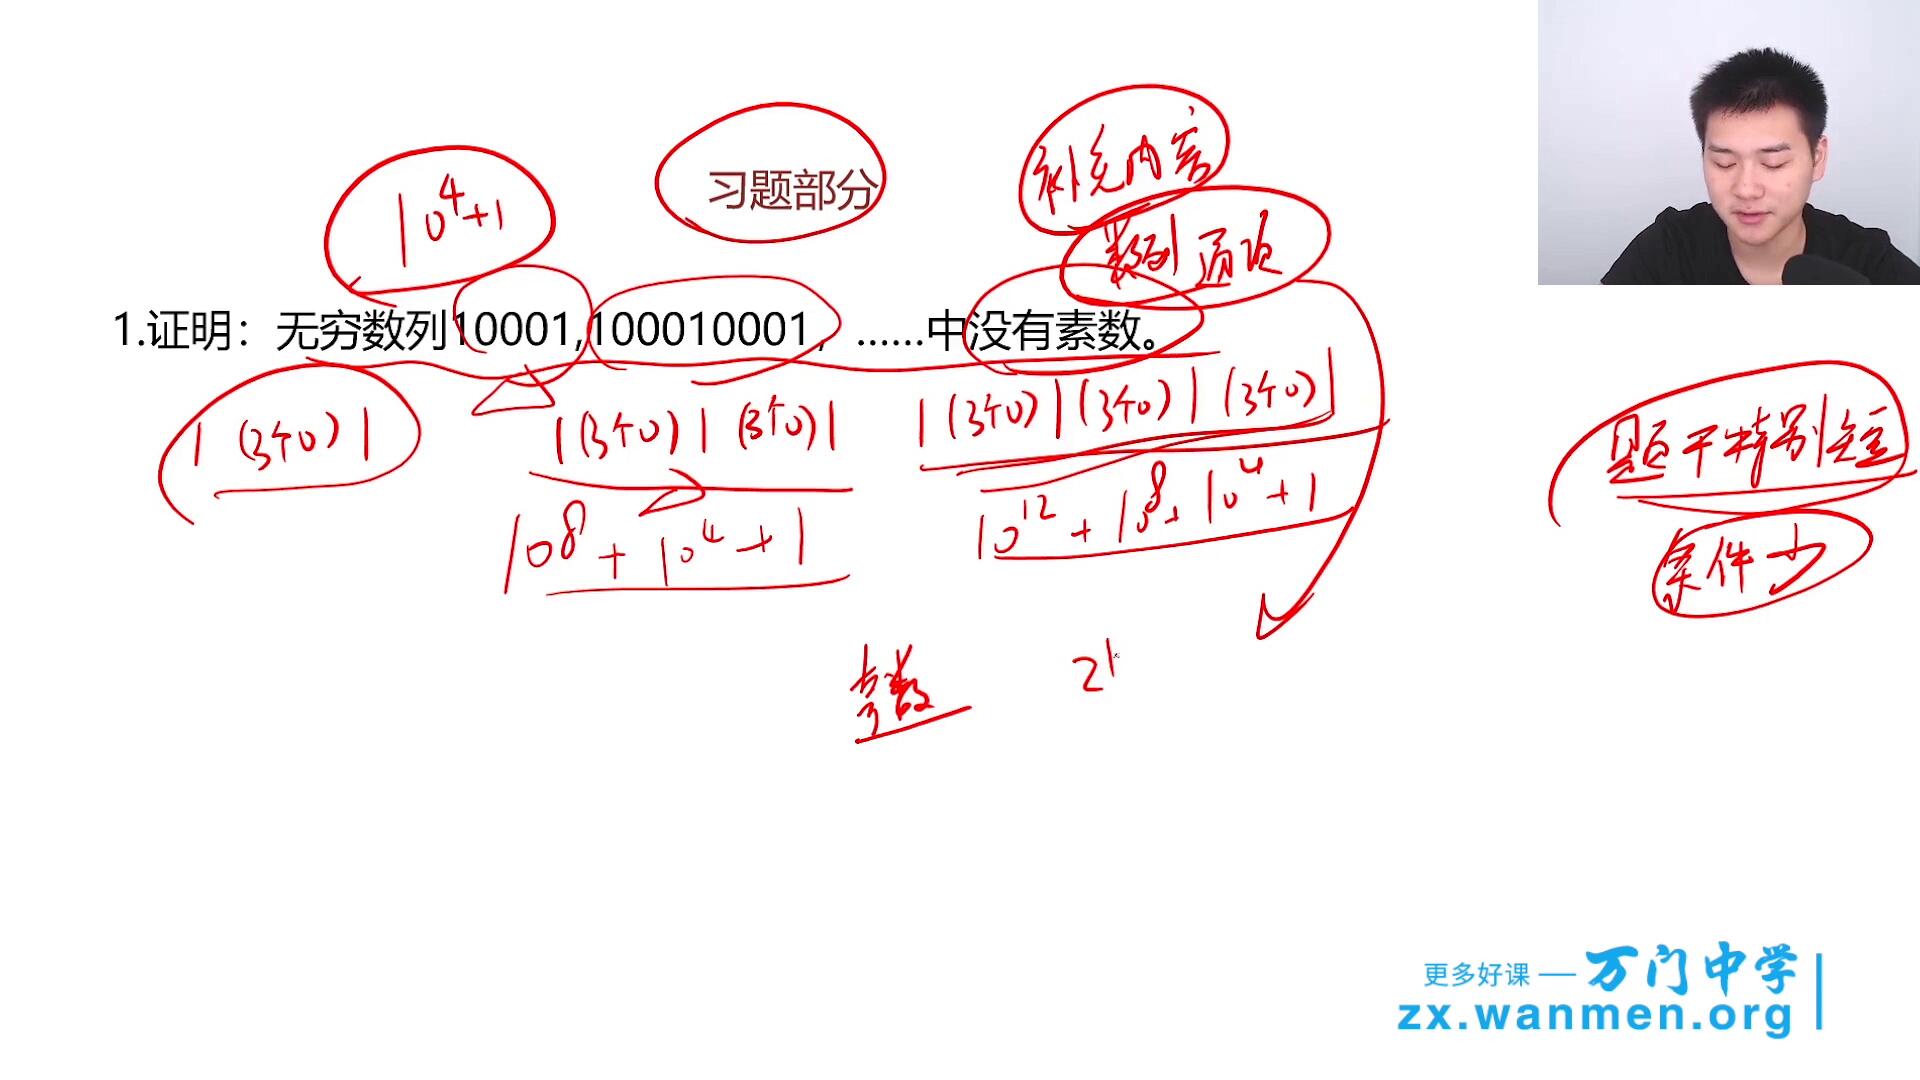 习题部分
补充内容
数列通项
10⁴+1
1.证明：无穷数列10001,100010001，……中没有素数。
1(3个0)1
1(3个0)1(3个0)1
1(3个0)1(3个0)1(3个0)1
题干特别短
条件少
10⁸+10⁴+1
10¹²+10⁸+10⁴+1
奇数
2k
更多好课 — 万门中学
zx.wanmen.org